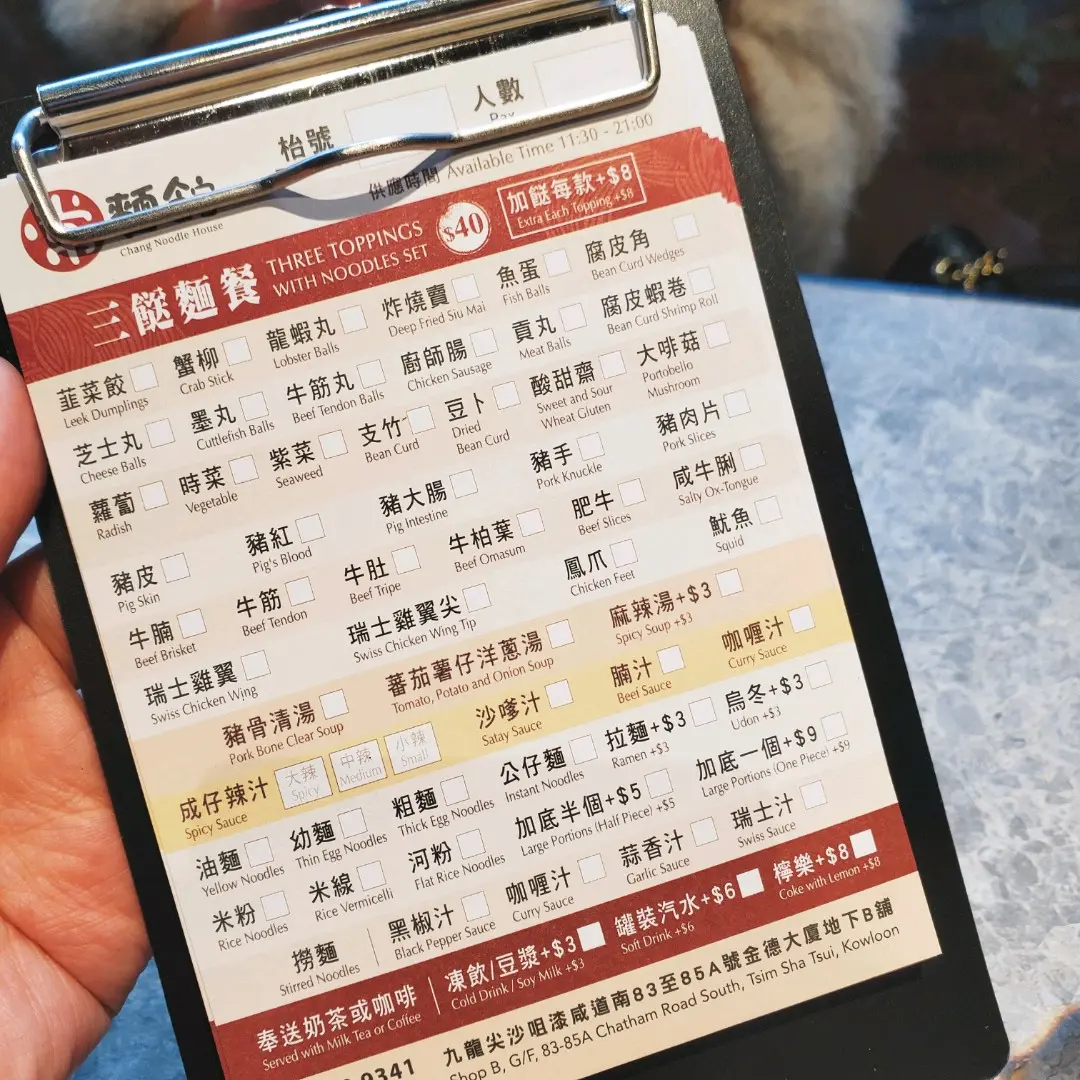 枱號 人數
Pax
麵館
Chang Noodle House
供應時間 Available Time 11:30 - 21:00
三餸麵餐 THREE TOPPINGS WITH NOODLES SET $40
加餸每款+$8
Extra Each Topping +$8
韮菜餃 蟹柳 龍蝦丸 炸燒賣 魚蛋 腐皮角
Leek Dumplings Crab Stick Lobster Balls Deep Fried Siu Mai Fish Balls Bean Curd Wedges
芝士丸 墨丸 牛筋丸 廚師腸 貢丸 腐皮蝦卷
Cheese Balls Cuttlefish Balls Beef Tendon Balls Chicken Sausage Meat Balls Bean Curd Shrimp Roll
蘿蔔 時菜 紫菜 支竹 豆卜 酸甜齋 大啡菇
Radish Vegetable Seaweed Bean Curd Dried Bean Curd Sweet and Sour Wheat Gluten Portobello Mushroom
豬皮 豬紅 豬大腸 豬手 豬肉片
Pig Skin Pig's Blood Pig Intestine Pork Knuckle Pork Slices
牛腩 牛筋 牛肚 牛柏葉 肥牛 咸牛脷
Beef Brisket Beef Tendon Beef Tripe Beef Omasum Beef Slices Salty Ox-Tongue
瑞士雞翼 瑞士雞翼尖 鳳爪 魷魚
Swiss Chicken Wing Swiss Chicken Wing Tip Chicken Feet Squid
豬骨清湯 蕃茄薯仔洋蔥湯 麻辣湯+$3
Pork Bone Clear Soup Tomato, Potato and Onion Soup Spicy Soup +$3
成仔辣汁 大辣 中辣 小辣 沙嗲汁 腩汁 咖喱汁
Spicy Sauce Spicy Medium Small Satay Sauce Beef Sauce Curry Sauce
油麵 幼麵 粗麵 公仔麵 拉麵+$3 烏冬+$3
Yellow Noodles Thin Egg Noodles Thick Egg Noodles Instant Noodles Ramen +$3 Udon +$3
米粉 米線 河粉 加底半個+$5 加底一個+$9
Rice Noodles Rice Vermicelli Flat Rice Noodles Large Portions (Half Piece) +$5 Large Portions (One Piece) +$9
撈麵 黑椒汁 咖喱汁 蒜香汁 瑞士汁
Stirred Noodles Black Pepper Sauce Curry Sauce Garlic Sauce Swiss Sauce
奉送奶茶或咖啡 凍飲/豆漿+$3 罐裝汽水+$6 檸樂+$8
Served with Milk Tea or Coffee Cold Drink / Soy Milk +$3 Soft Drink +$6 Coke with Lemon +$8
9341 九龍尖沙咀漆咸道南83至85A號金德大廈地下B舖
Shop B, G/F, 83-85A Chatham Road South, Tsim Sha Tsui, Kowloon